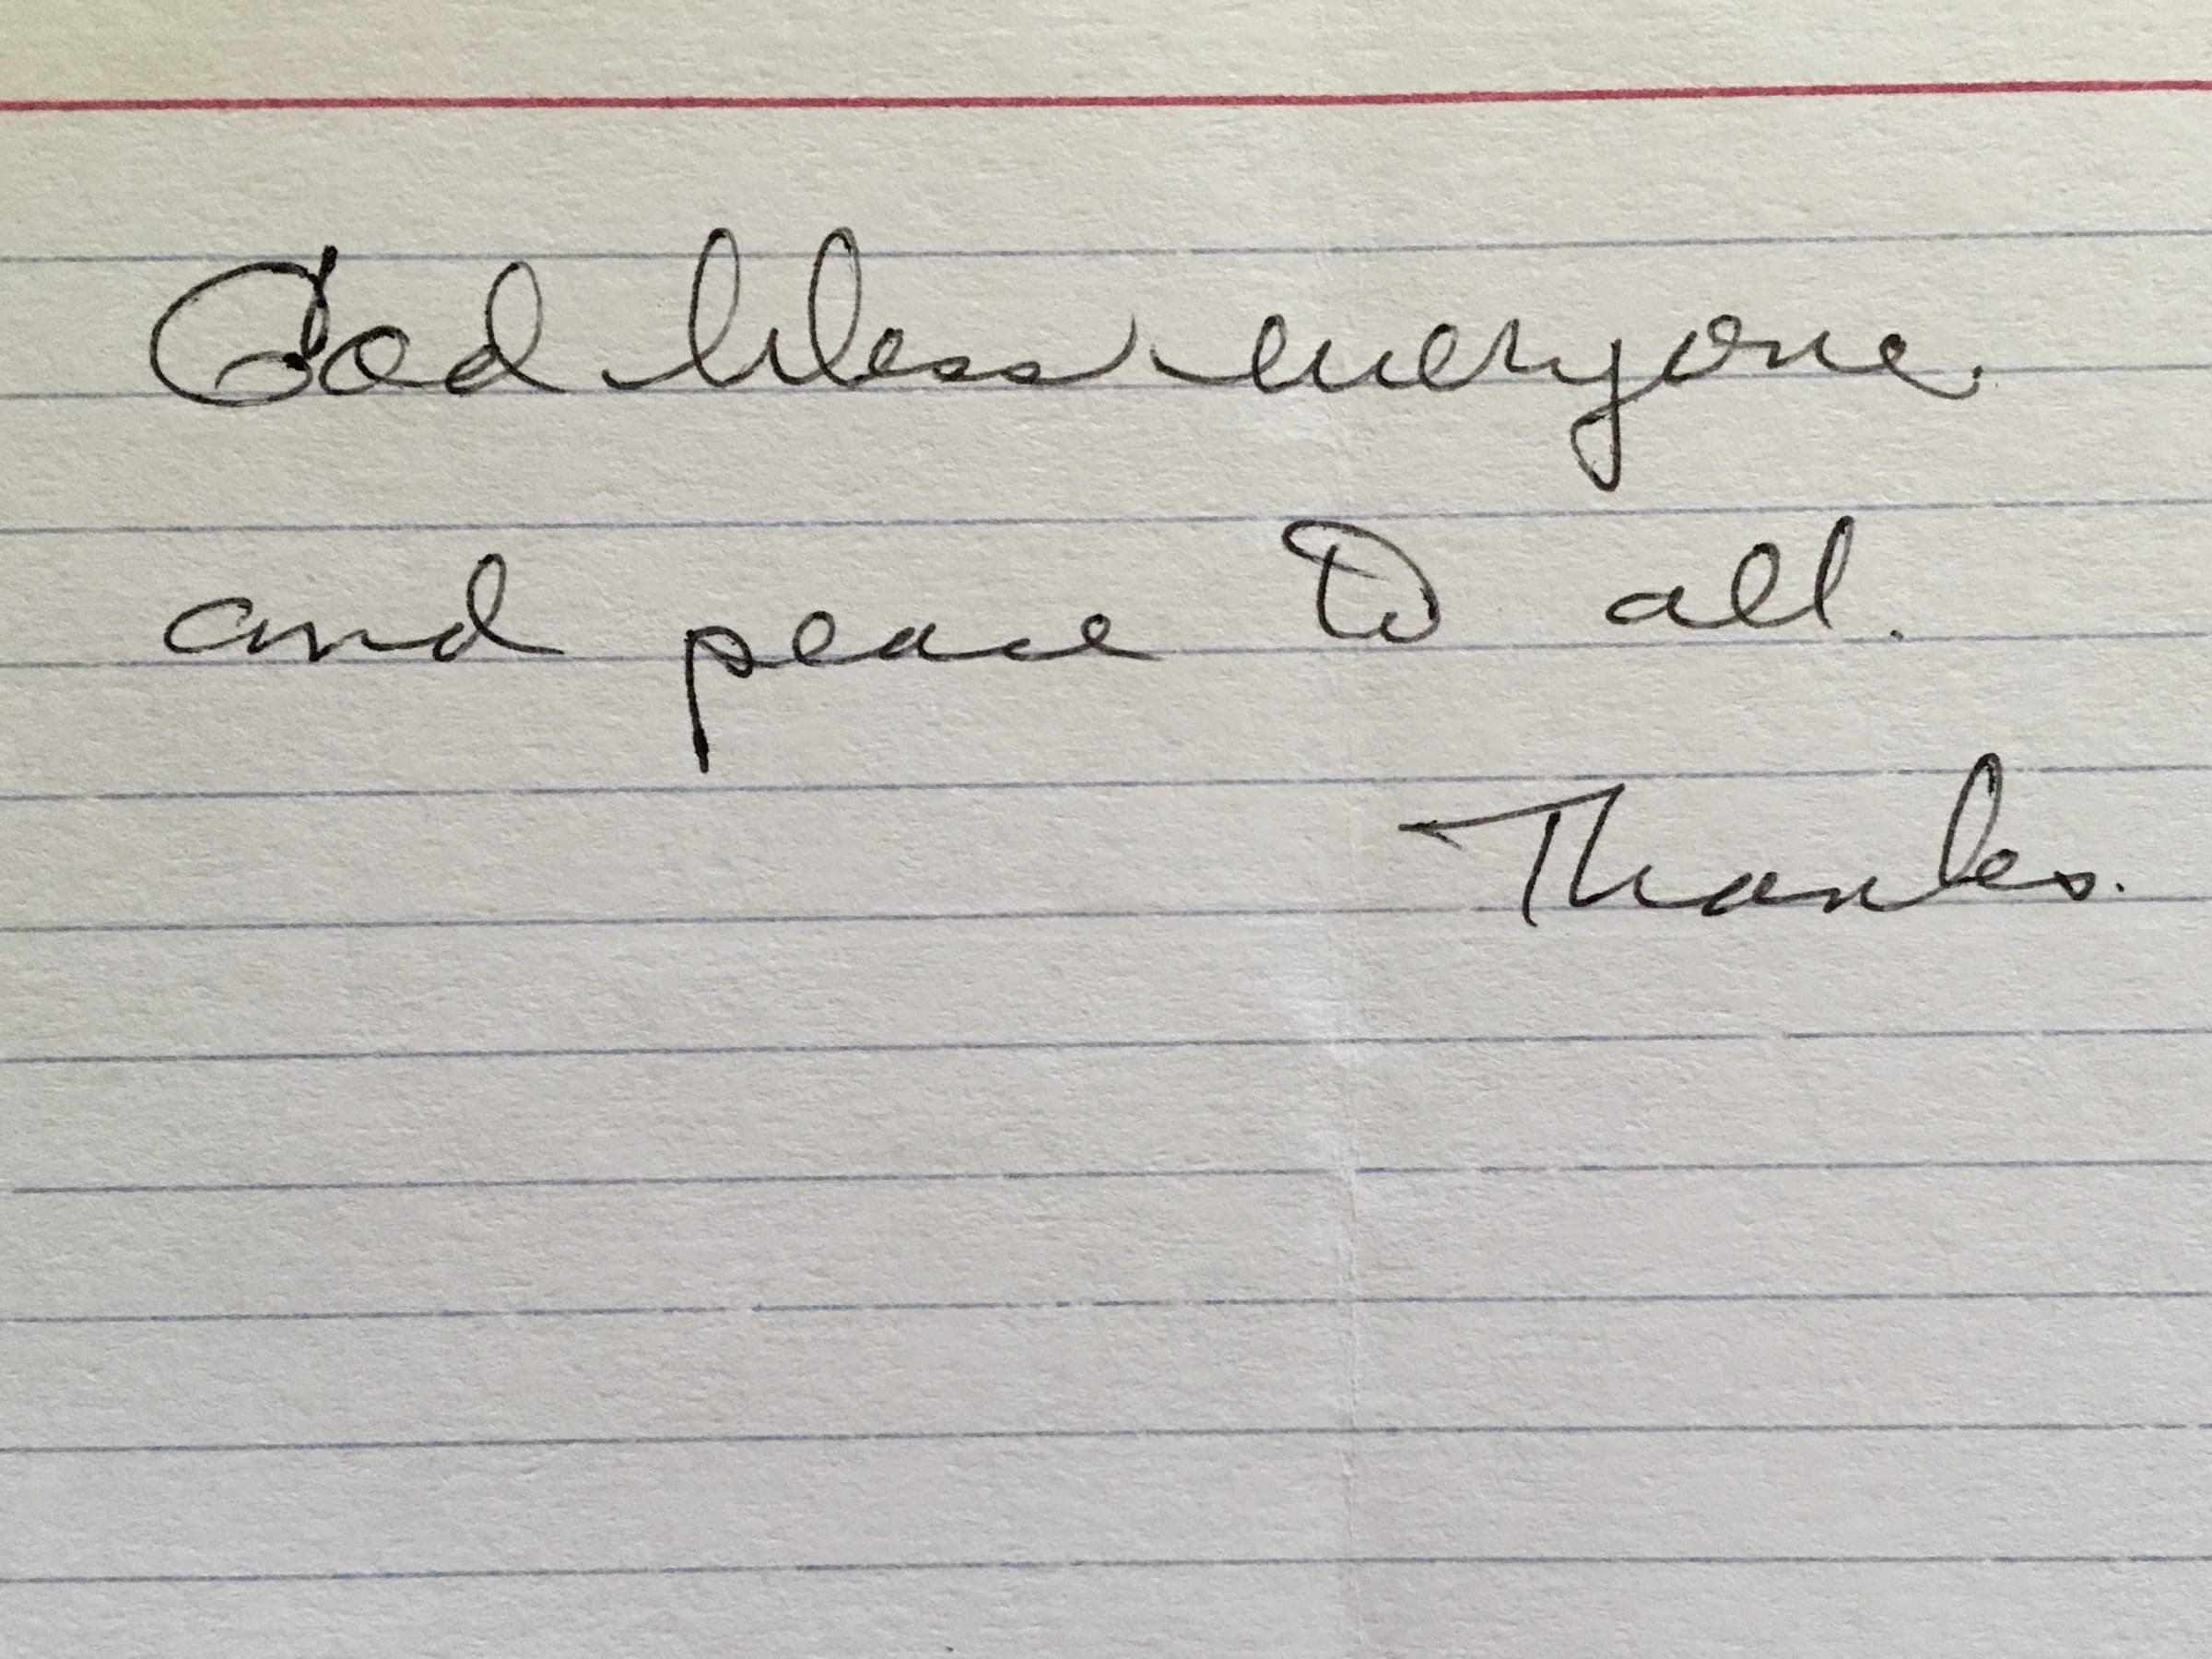 God bless everyone.
and peace to all.
Thanks.